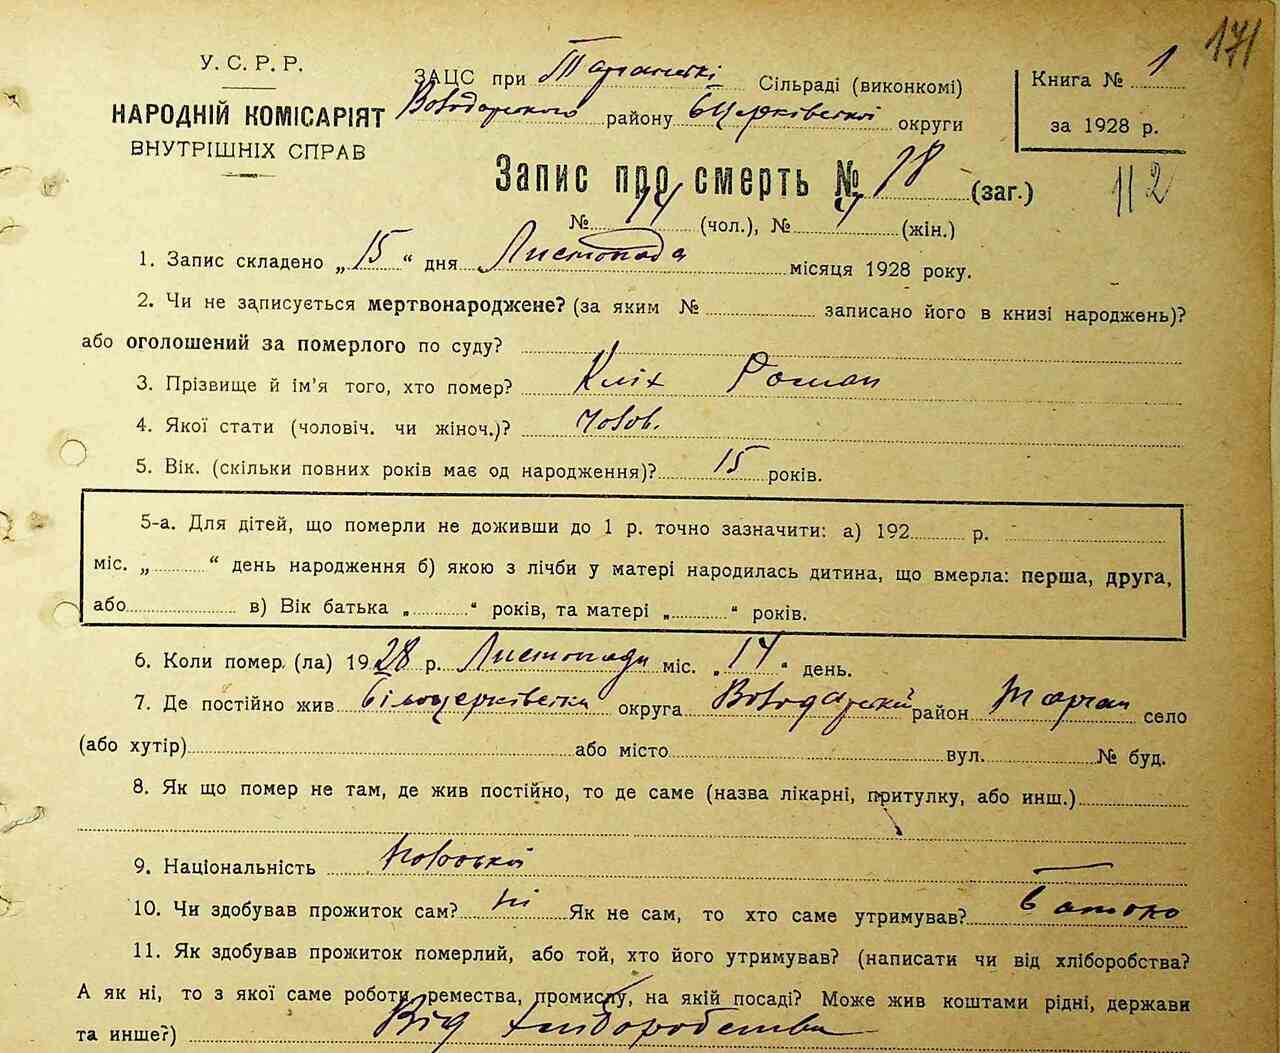 171
У. С. Р. Р.
НАРОДНІЙ КОМІСАРІЯТ
ВНУТРІШНІХ СПРАВ
ЗАЦС при Сільраді (виконкомі)
Володарского району Бцерківської округи
Книга № 1
за 1928 р.
Запис про смерть № 18 (заг.)
112
№ 14 (чол.), № 4 (жін.)
1. Запис складено „ 15 “ дня Листопада місяця 1928 року.
2. Чи не записується мертвонароджене? (за яким № записано його в книзі народжень)?
або оголошений за померлого по суду?
3. Прізвище й ім'я того, хто помер? Кліх Роман
4. Якої стати (чоловіч. чи жіноч.)? Чолов.
5. Вік. (скільки повних років має од народження)? 15 років.
5-а. Для дітей, що померли не доживши до 1 р. точно зазначити: а) 192 р.
міс. „ “ день народження б) якою з лічби у матері народилась дитина, що вмерла: перша, друга,
або в) Вік батька „ “ років, та матері „ “ років.
6. Коли помер (ла) 1928 р. Листопада міс. „ 14 “ день.
7. Де постійно жив Білоцерківська округа Володарский район Тарган село
(або хутір) або місто вул. № буд.
8. Як що помер не там, де жив постійно, то де саме (назва лікарні, притулку, або инш.)
9. Національність
10. Чи здобував прожиток сам? ні Як не сам, то хто саме утримував? Батько
11. Як здобував прожиток померлий, або той, хто його утримував? (написати чи від хліборобства?
А як ні, то з якої саме роботи, ремества, промислу, на якій посаді? Може жив коштами рідні, держави
та инше?) Від хліборобства